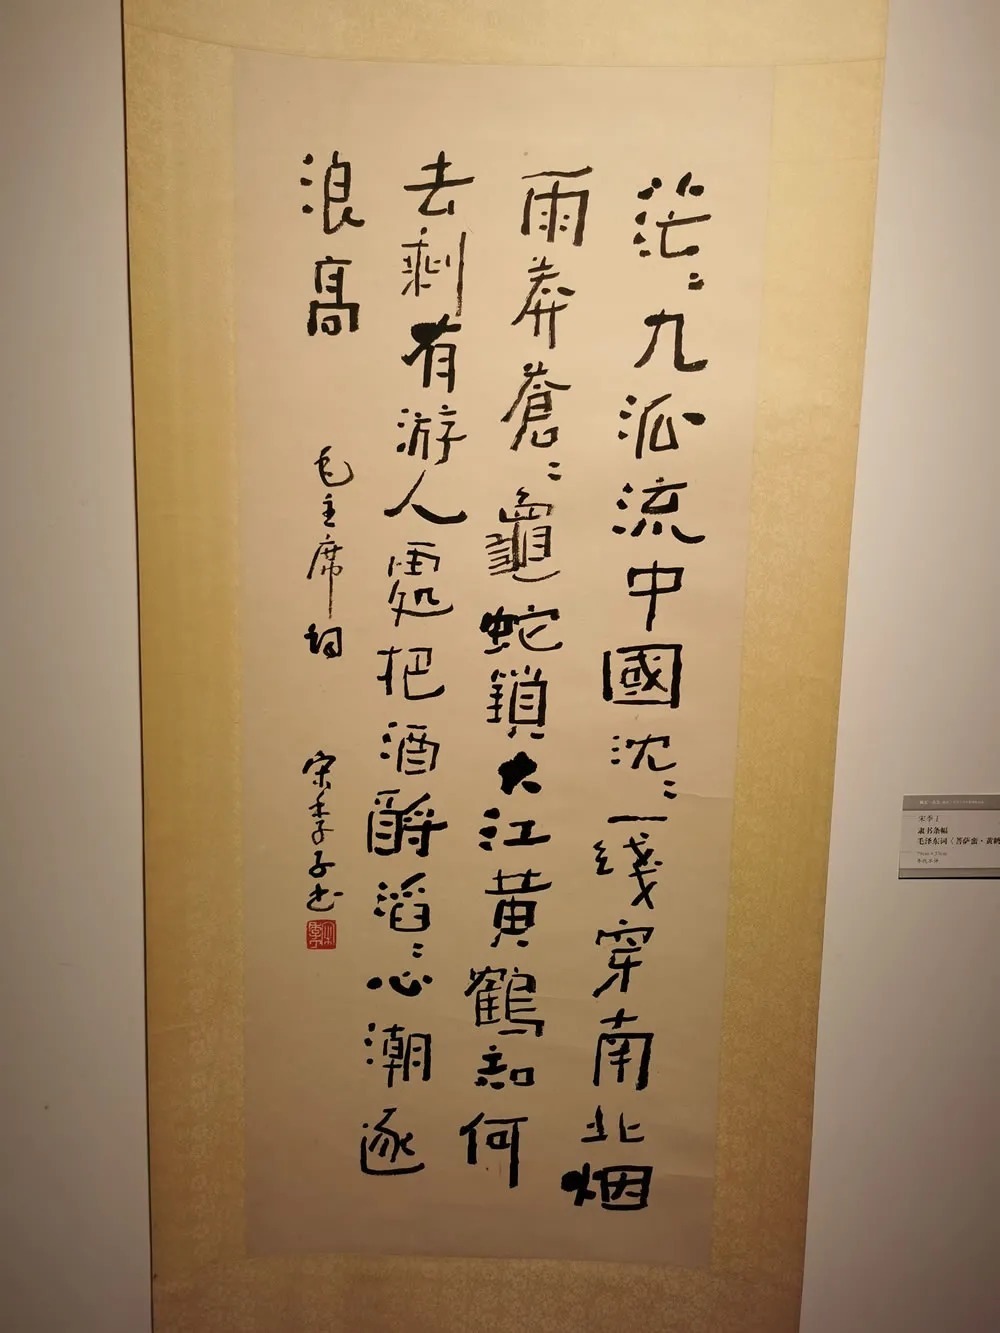 茫〻九派流中國沈〻一綫穿南北烟
雨莽蒼〻龜蛇鎖大江黃鶴知何
去剩有游人處把酒酹滔〻心潮逐
浪高
毛主席詞
宋季子书
宋季丁
隶书条幅
毛泽东词《菩萨蛮·黄鹤